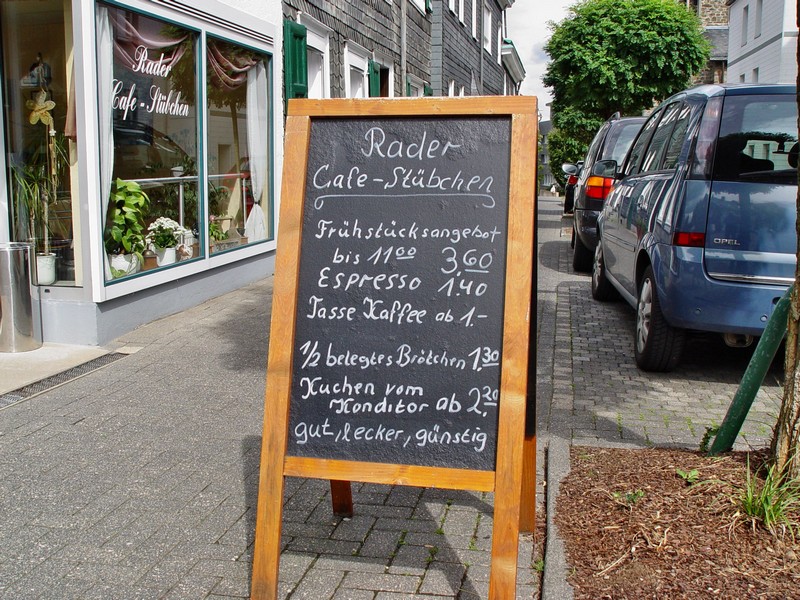 Rader
Cafe-Stübchen
Rader
Cafe-Stübchen
Frühstücksangebot
bis 11 00 3,60
Espresso 1,40
Tasse Kaffee ab 1,-
1/2 belegtes Brötchen 1,30
Kuchen vom
Konditor ab 2,20
gut, lecker, günstig
OPEL